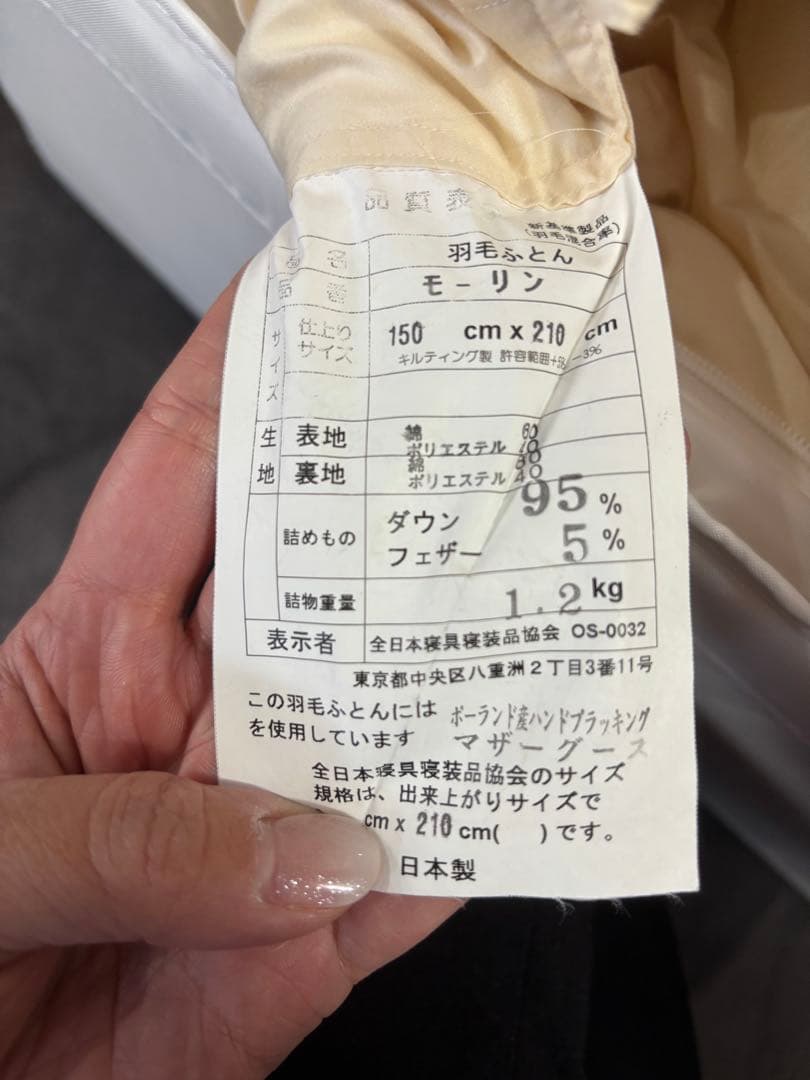 品質表
新基準製品
(羽毛混合率)
品名 羽毛ふとん
品番 モーリン
サイズ 仕上りサイズ 150 cm x 210 cm
キルティング製 許容範囲+5% -3%
生地 表地 綿 60
ポリエステル 40
裏地 綿 60
ポリエステル 40
詰めもの ダウン 95 %
フェザー 5 %
詰物重量 1.2 kg
表示者 全日本寝具寝装品協会 OS-0032
東京都中央区八重洲2丁目3番11号
この羽毛ふとんには ポーランド産ハンドプラッキング
を使用しています マザーグース
全日本寝具寝装品協会のサイズ
規格は、出来上がりサイズで
cm x 210 cm( )です。
日本製